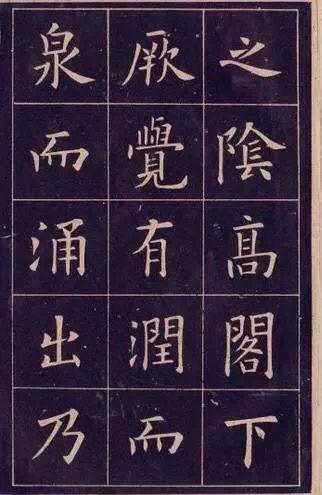 之陰高閣下
厥覺有潤而
泉而涌出乃